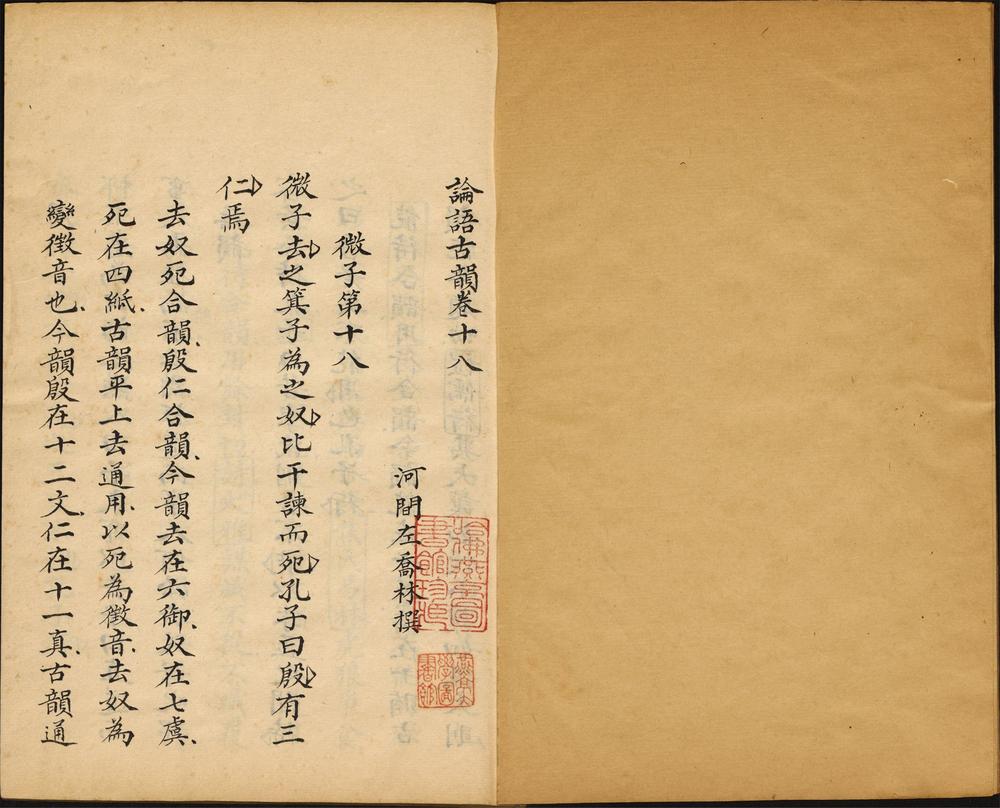 論語古韻卷十八
河間左喬林撰
微子第十八
微子去之箕子為之奴比干諫而死孔子曰殷有三
仁焉
去奴死合韻殷仁合韻今韻去在六御奴在七虞
死在四紙古韻平上去通用以死為徵音去奴為
變徵音也今韻殷在十二文仁在十一真古韻通
哈佛燕京圖
書館珍藏